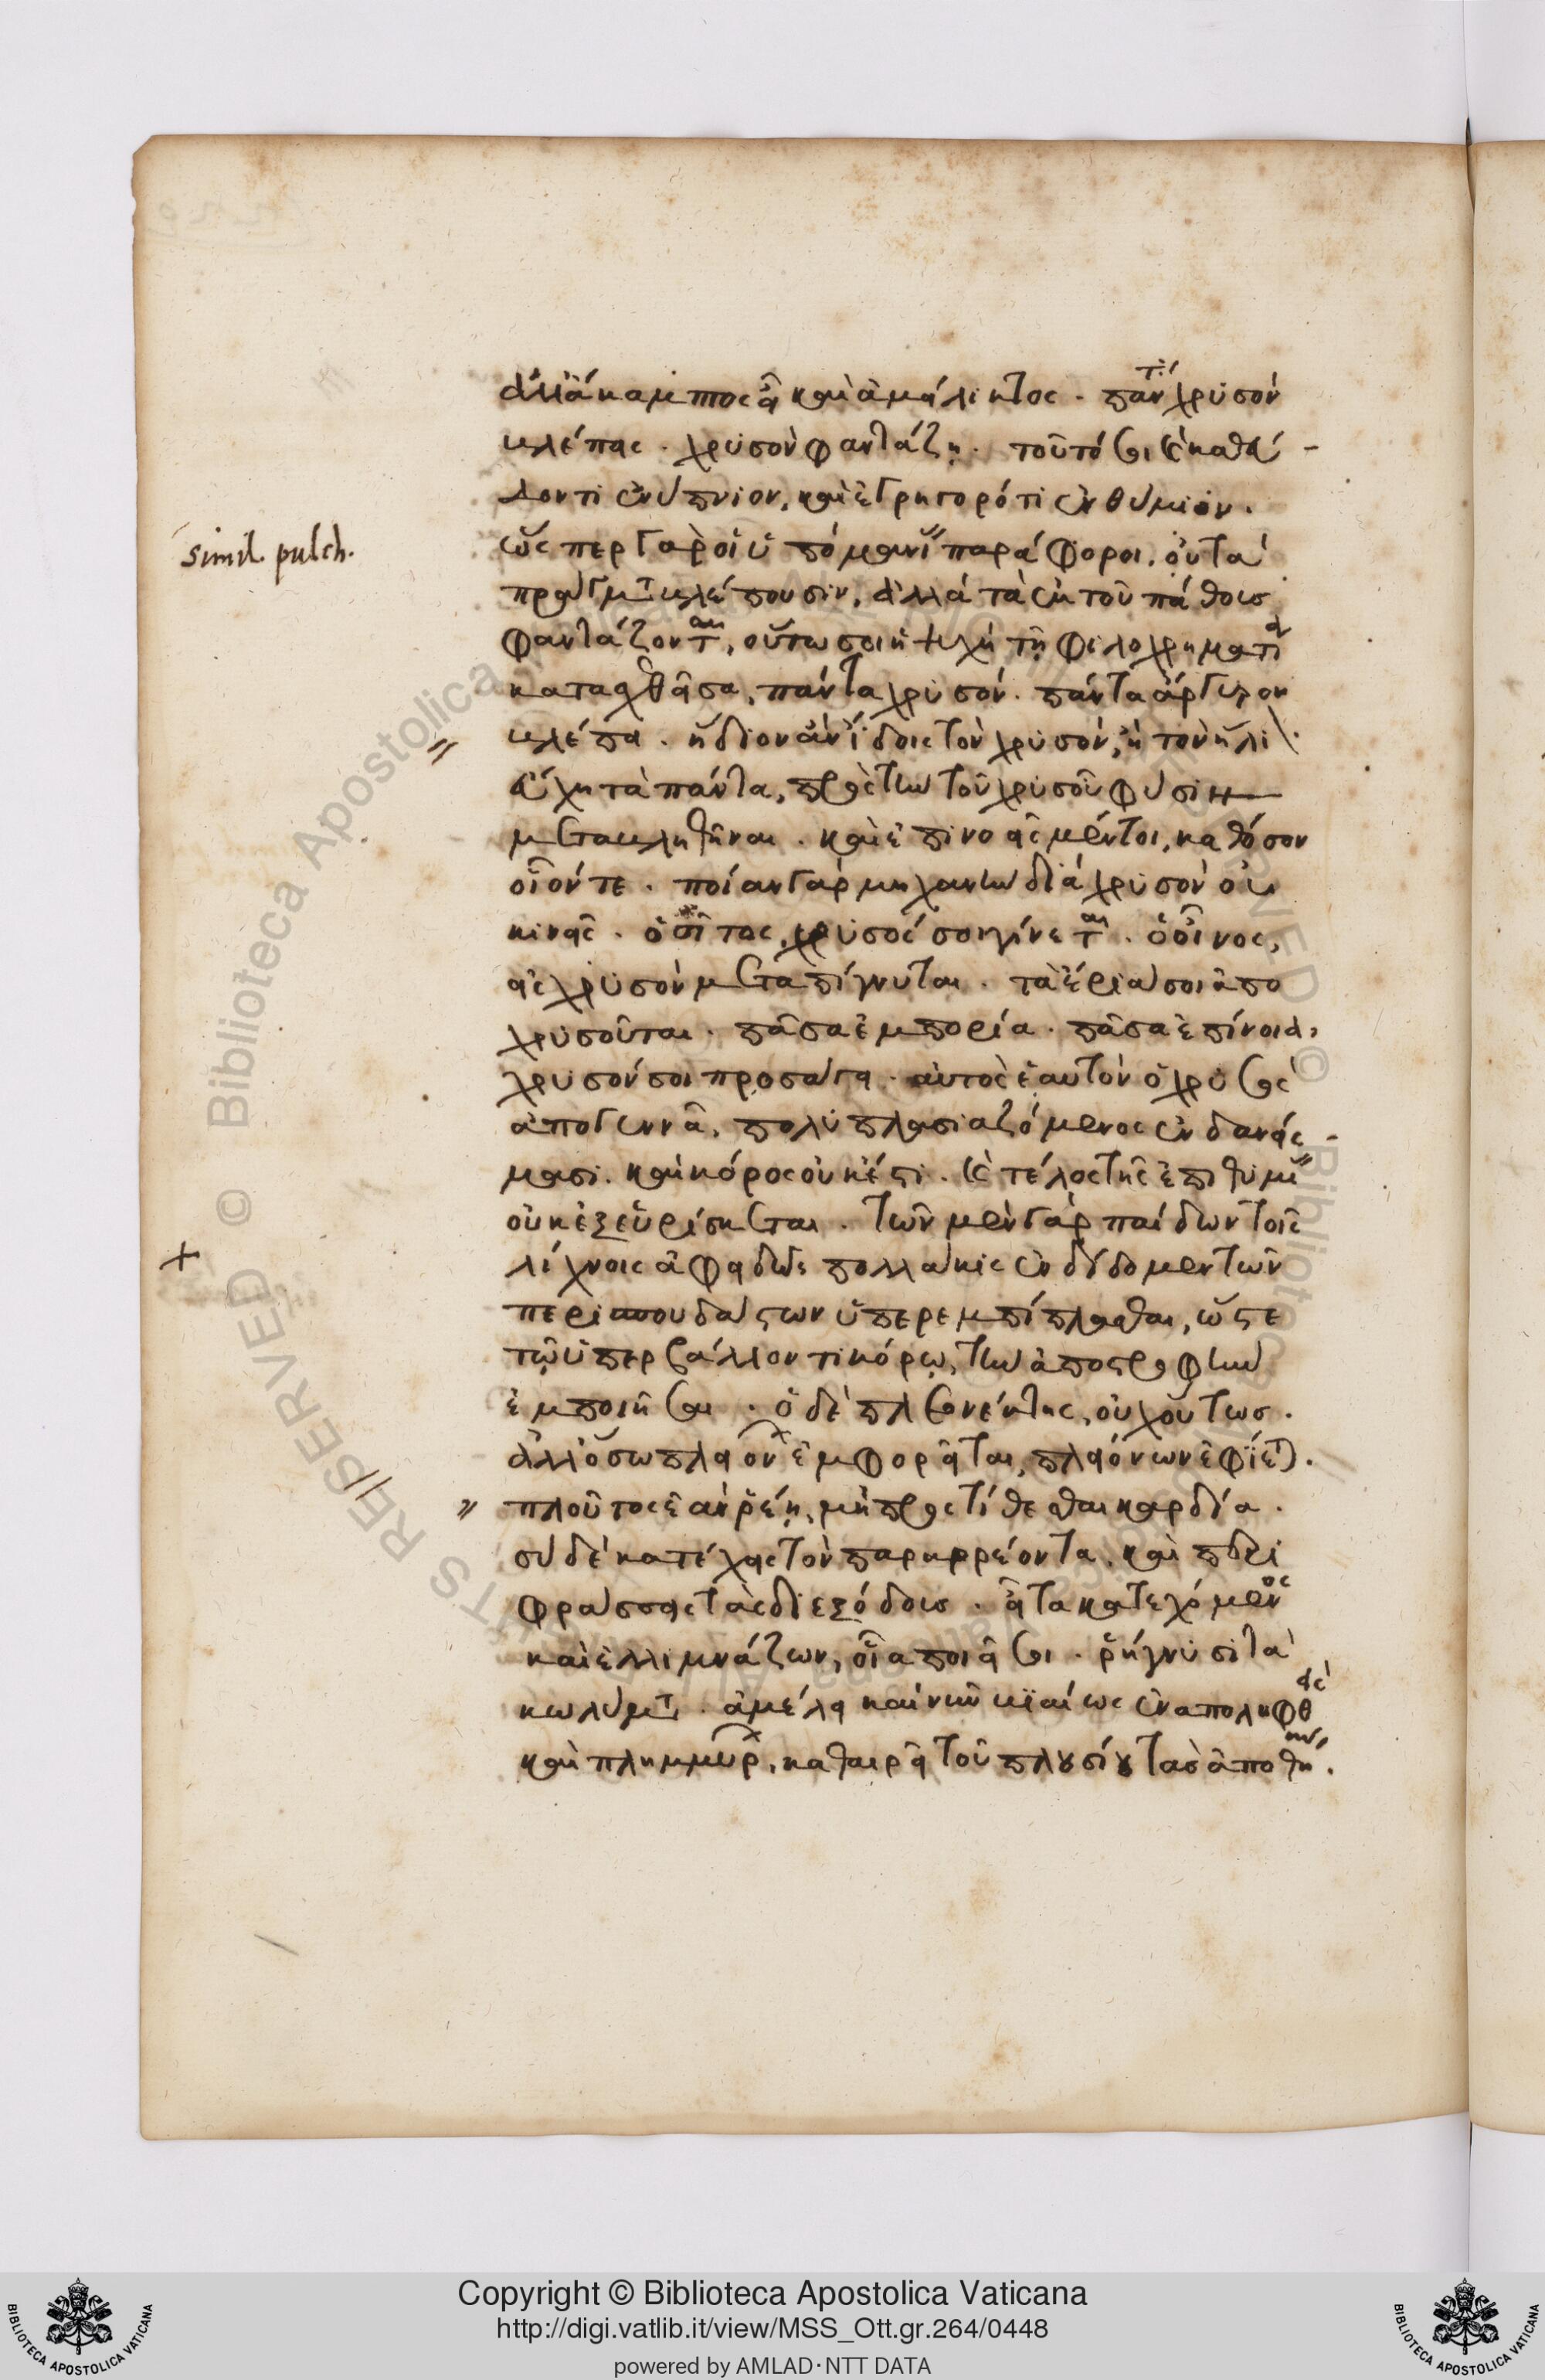 ἀλλ' ἄκαμπτος εἶ καὶ ἀμείλικτος. πάντα χρυσὸν
βλέπεις. χρυσὸν φαντάζῃ. τοῦτό σοι καὶ καθεύ-
δοντι ἐνύπνιον, καὶ ἐγρηγορότι ἐνθύμιον.
ὥσπερ γὰρ οἱ ὑπὸ μανίας παράφοροι, οὐ τὰ
πράγματα βλέπουσιν, ἀλλὰ τὰ ἐκ τοῦ πάθους
φαντάζονται, οὕτω σοι ἡ ψυχὴ τῇ φιλοχρηματίᾳ
κατασχεθεῖσα, πάντα χρυσόν. πάντα ἄργυρον
βλέπει. ἥδιον ἂν ἴδοις τὸν χρυσόν, ἢ τὸν ἥλιον.
εὔχῃ τὰ πάντα, πρὸς τὴν τοῦ χρυσοῦ φύσιν
μεταβληθῆναι. καὶ ἐπινοεῖς μέντοι, καθόσον
οἷόν τε. ποίαν γὰρ μηχανὴν διὰ χρυσὸν οὐ
κινεῖς. ὁ σῖτος, χρυσός σοι γίνεται. ὁ οἶνος,
εἰς χρυσὸν μεταπήγνυται. τὰ ἔριά σοι ἀπο
χρυσοῦται. πᾶσα ἐμπορία. πᾶσα ἐπίνοια,
χρυσόν σοι προσάγει. αὐτὸς ἑαυτὸν ὁ χρυσὸς
ἀπογεννᾷ, πολυπλασιαζόμενος ἐν δανείσ-
μασι. καὶ κόρος οὐκ ἔστι. καὶ τέλος τῆς ἐπιθυμίας
οὐκ ἐξευρίσκεται. τῶν μὲν γὰρ παίδων τοῖς
λίχνοις ἀφειδῶς πολλάκις ἐνδίδομεν τῶν
περισπουδάστων ὑπερεμπίπλασθαι, ὥστε
τῷ ὑπερβάλλοντι κόρῳ, τὴν ἀποστροφὴν
ἐμποιῆσαι. ὁ δὲ πλεονέκτης, οὐχ οὕτως.
ἀλλ' ὅσῳ πλειόνων ἐμφορεῖται, πλειόνων ἐφίεται.
πλοῦτος ἐὰν ῥέῃ, μὴ προστίθεσθαι καρδίαν.
σὺ δὲ κατέχεις τὸν παραρρέοντα, καὶ περι
φράσσεις τὰς διεξόδους. εἶτα κατεχόμενος
καὶ ἐλλιμνάζων, οἷα ποιεῖ σοι. ῥήγνυσι τὰ
κωλύματα. ἀμέλει καὶ νῦν βιαίως ἐναποληφθεὶς
καὶ πλημμυρῶν, καθαιρεῖ τοῦ πλουσίου τὰς ἀποθήκας.
simil. pulch.
Copyright © Biblioteca Apostolica Vaticana
http://digi.vatlib.it/view/MSS_Ott.gr.264/0448
powered by AMLAD·NTT DATA